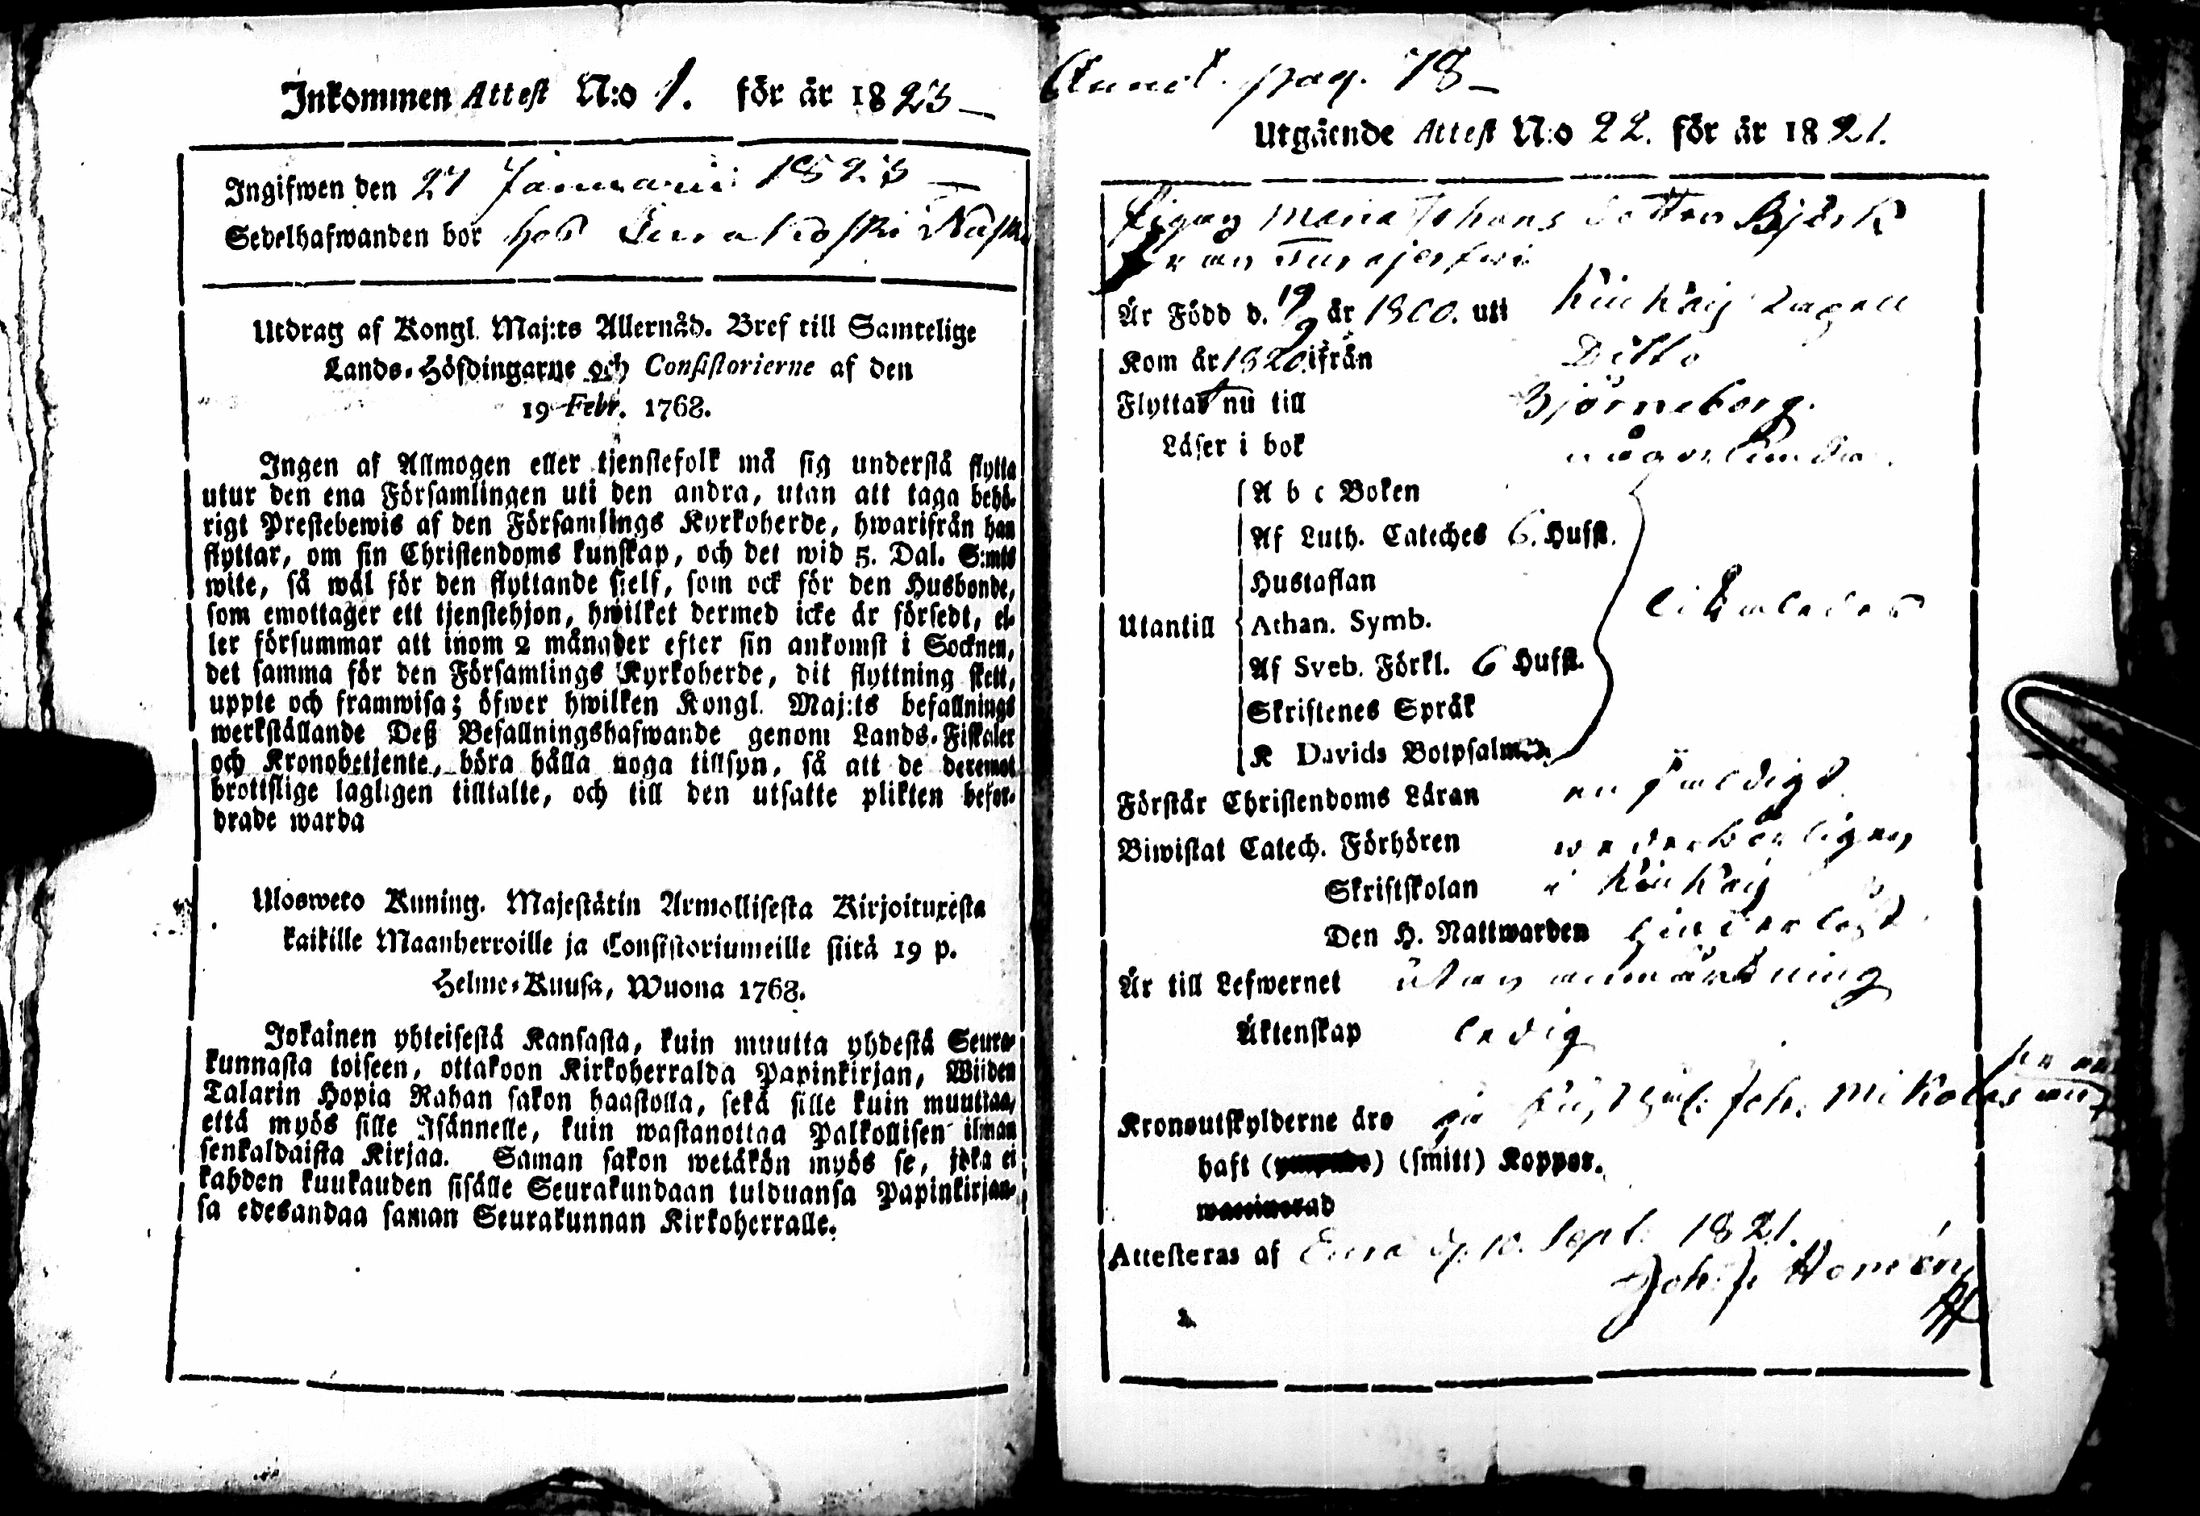 Inkommen Attest N:o 1. för år 1823
Ingifwen den 27 Januarii 1823
Sedelhafwanden bor hos
Utdrag af Kongl. Maj:ts Allernåd. Bref till Samtelige
Lands-Höfdingarne och Consistorierne af den
19 Febr. 1768.
Ingen af Allmogen eller tjenstefolk må sig understå flytta
utur den ena Församlingen uti den andra, utan att taga behö-
rigt Prestebewis af den Församlings Kyrkoherde, hwarifrån han
flyttar, om sin Christendoms kunskap, och det wid 5. Dal. S:mts
wite, så wäl för den flyttande sjelf, som ock för den Husbonde,
som emottager ett tjenstehjon, hwilket dermed icke är försedt, el-
ler försummar att inom 2 månader efter sin ankomst i Socknen,
det samma för den Församlings Kyrkoherde, dit flyttning skett,
uppte och framwisa; öfwer hwilken Kongl. Maj:ts befallnings
werkställande Deß Befallningshafwande genom Lands-Fiskaler
och Kronobetjente, böra hålla noga tillsyn, så att de deremot
brottslige lagligen tilltalte, och till den utsatte plikten befor-
drade warda
Ulosweto Kuning. Majestätin Armollisesta Kirjoituxesta
kaikille Maanherroille ja Consistoriumeille siitä 19 p.
Helme-Kuusa, Wuona 1768.
Jokainen yhteisestä Kansasta, kuin muutta yhdestä Seura-
kunnasta toiseen, ottakoon Kirkoherralda Papinkirjan, Wiiden
Talarin Hopia Rahan sakon haastolla, sekä sille kuin muuttaa,
että myös sille Isännelle, kuin wastanottaa Palkollisen ilman
senkaldaista Kirjaa. Saman sakon wetäkön myös se, joka ei
kahden kuukauden sisälle Seurakundaan tulduansa Papinkirjan-
sa edesandaa saman Seurakunnan Kirkoherralle.
pag. 78
Utgående Attest N:o 22. för år 1821.
Pigan Maria Johans dotter Björk
från
Är Född d. 19/9 år 1800. uti
Kom år 1820 ifrån Ditto
Flyttat nu till Björneborg.
Läser i bok någorlunda
A b c Boken
Af Luth. Cateches 6. Hufst.
Hustaflan
Utantill Athan. Symb. likaledes
Af Sveb. Förkl. 6 Hufst.
Skriftenes Språk
K Davids Botpsalmer
Förstår Christendoms Läran enfaldigt
Biwistat Catech. Förhören wederbörligen
Skriftskolan i
Den H. Nattwarden
Är till Lefwernet utan anmärkning
Äktenskap ledig
Kronoutskylderne äro Joh. Mikolas
haft (smitt) Koppor.
Attesteras af Eura d. 10. Sept. 1821.
Joh. Fr. Homén